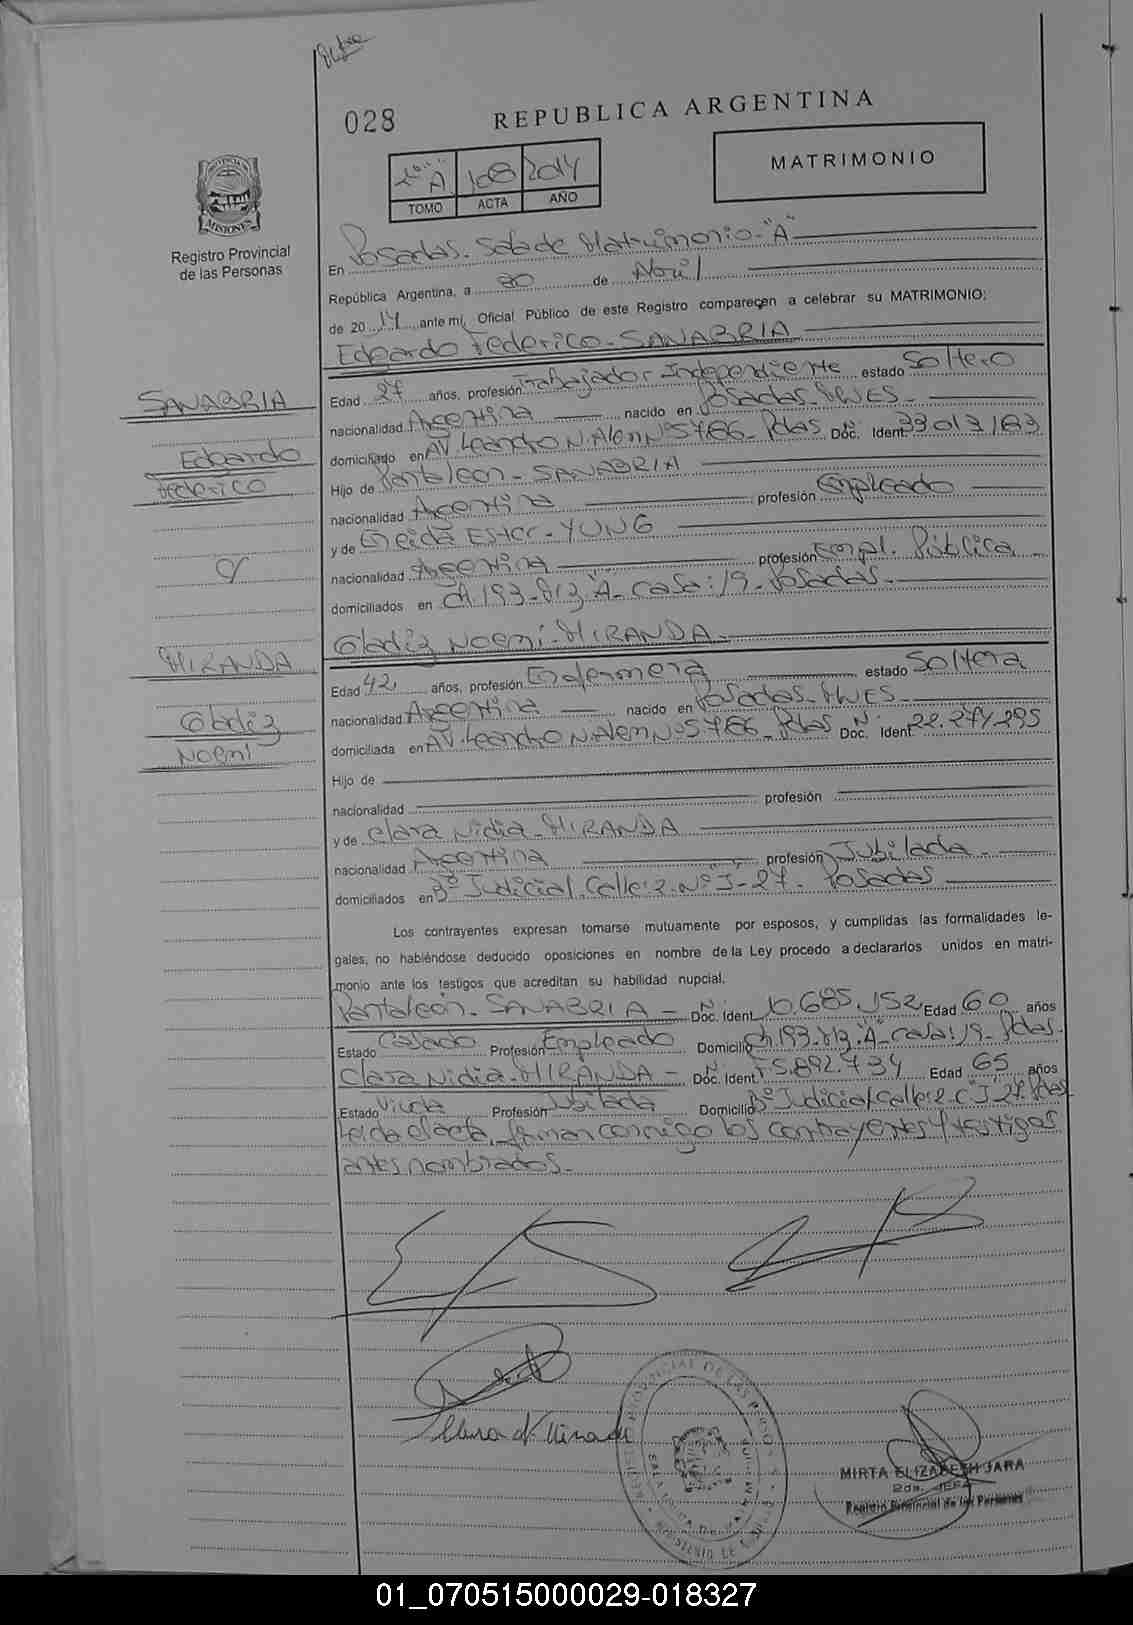 028
REPUBLICA ARGENTINA
MATRIMONIO
A 108 2014
TOMO ACTA AÑO
PROVINCIA
MISIONES
Registro Provincial
de las Personas
En Posadas. Sala de Matrimonio "A"
República Argentina, a 30 de Abril
de 2014 ante mí, Oficial Público de este Registro comparecen a celebrar su MATRIMONIO:
Edgardo Federico - SANABRIA
SANABRIA
Edgardo
Federico
Edad 27 años, profesión Trabajador Independiente estado Soltero
nacionalidad Argentina nacido en Posadas - Mnes
domiciliado en AV. Leandro N. Alem Nº 5766 - Pdas Doc. Ident. 33.013.163
Hijo de Pantaleon - SANABRIA
nacionalidad Argentina profesión Empleado
y de Ester - YUNG
nacionalidad Argentina profesión Empl. Pública
domiciliados en Ch. 193 - Mz "A" - Casa: 19 - Posadas -
y
MIRANDA
Gladiz
Noemi
Gladiz Noemi - MIRANDA -
Edad 42 años, profesión Enfermera estado Soltera
nacionalidad Argentina nacido en Posadas - Mnes
domiciliada en AV. Leandro N. Alem Nº 5766 - Pdas Doc. Ident. 22.271.295
Hijo de
nacionalidad profesión
y de Clara Nidia - MIRANDA
nacionalidad Argentina profesión Jubilada -
domiciliados en Bº Judicial Calle: 2 Nº "J" - 27 - Posadas
Los contrayentes expresan tomarse mutuamente por esposos, y cumplidas las formalidades le-
gales, no habiéndose deducido oposiciones en nombre de la Ley procedo a declararlos unidos en matri-
monio ante los testigos que acreditan su habilidad nupcial.
Pantaleón - SANABRIA - Doc. Ident. 10.685.152 Edad 60 años
Estado Casado Profesión Empleado Domicilio Ch. 193 - Mz "A" - Casa: 19 - Pdas -
Clara Nidia - MIRANDA - Doc. Ident. F5.892.734 Edad 65 años
Estado Viuda Profesión Jubilada Domicilio Bº Judicial Calle: 2 C "J" 27 - Pdas
Leída el acta, firman conmigo los contrayentes y testigos
antes nombrados -
MIRTA ELIZABETH JARA
2da. JEFA
Registro Provincial de las Personas
01_070515000029-018327